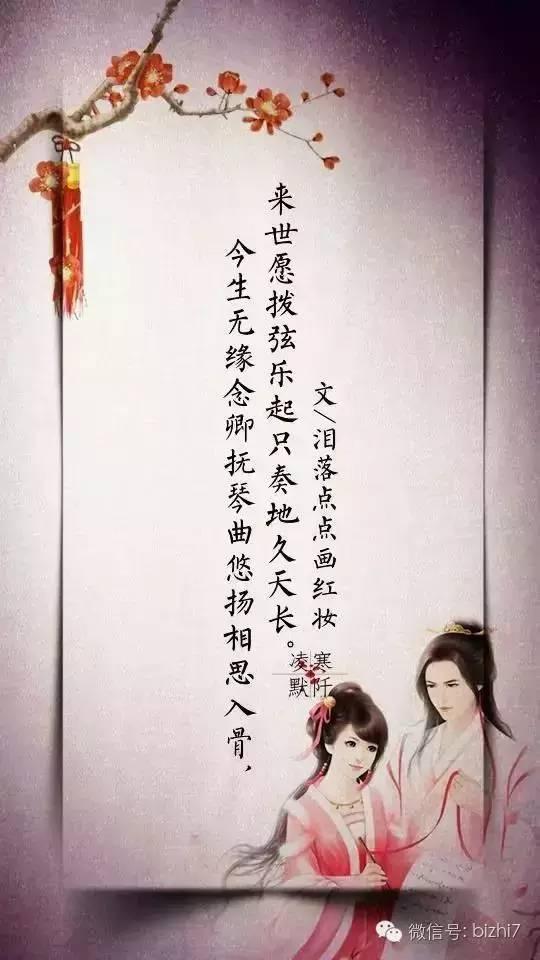 今生无缘念卿抚琴曲悠扬相思入骨，
来世愿拨弦乐起只奏地久天长。
文/泪落点点画红妆
凌寒
默阡
微信号: bizhi7